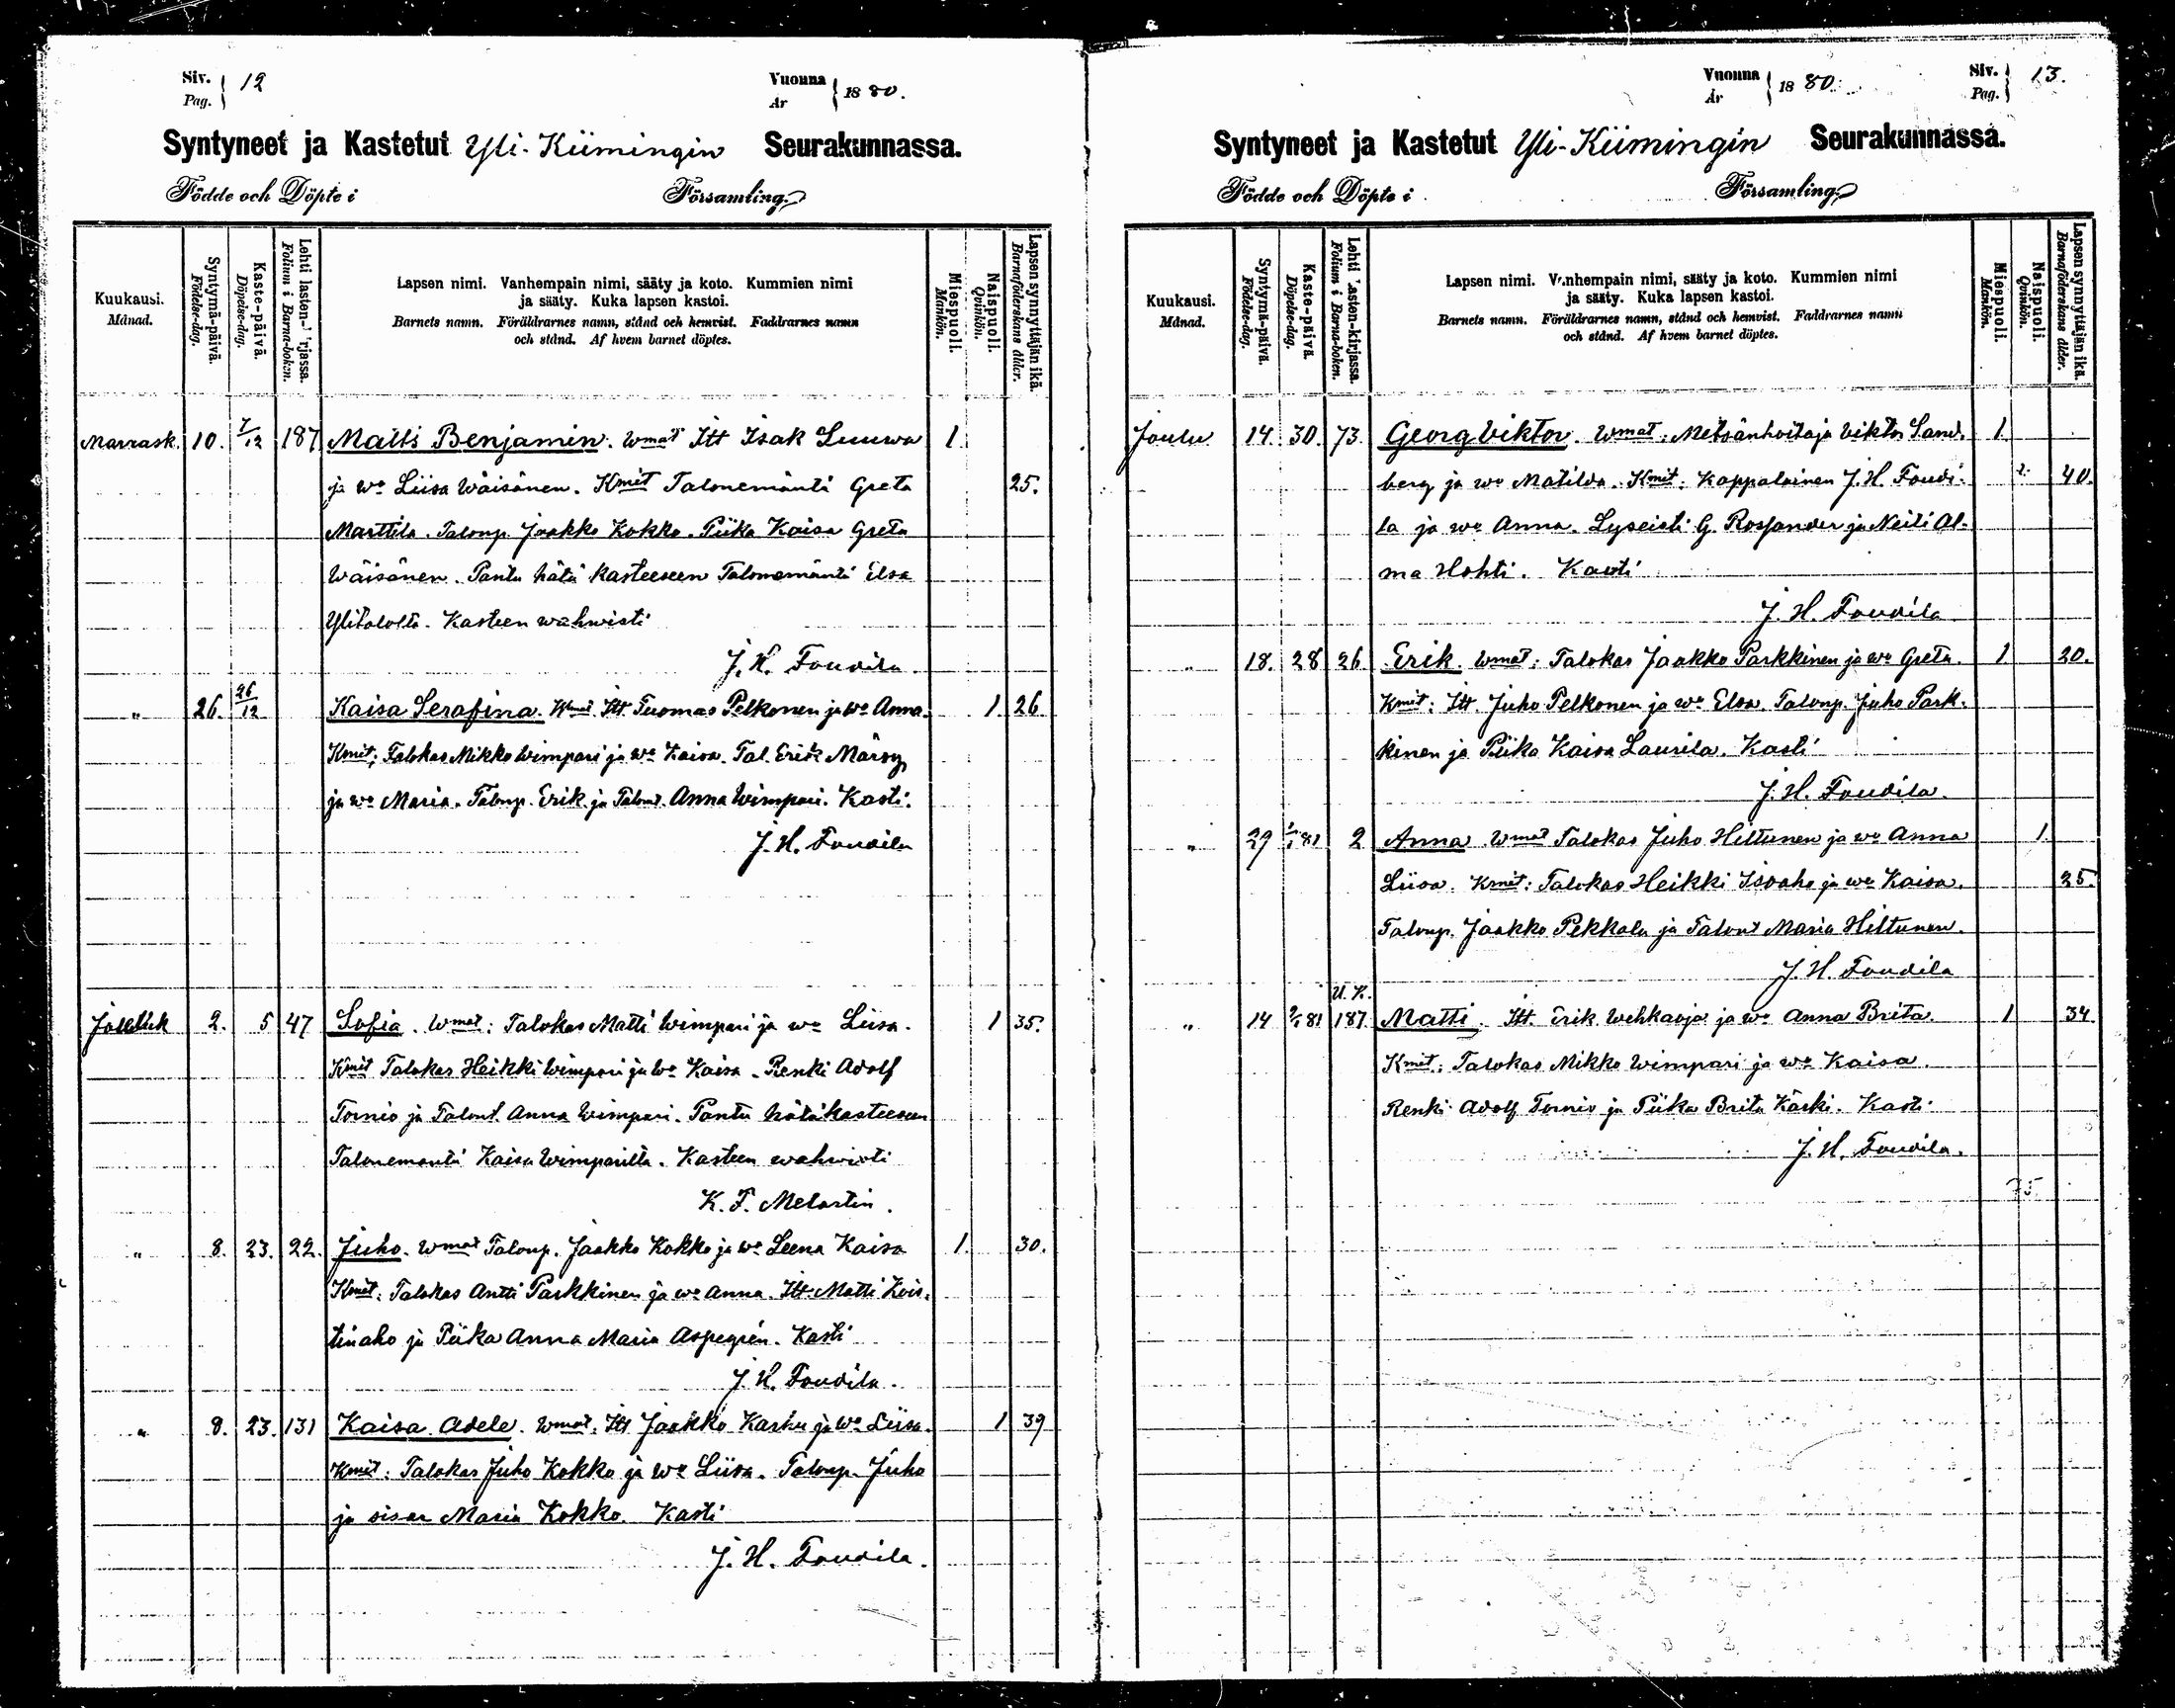 Siv. Pag. 12
Vuonna År 1880.
Syntyneet ja Kastetut Yli-Kiimingin Seurakunnassa.
Födde och Döpte i Församling.
Kuukausi. Månad.
Syntymä-päivä. Födelse-dag.
Kaste-päivä. Döpelse-dag.
Lehti lasten- 'rjassa. Folium i Barna-boken.
Lapsen nimi. Vanhempain nimi, sääty ja koto. Kummien nimi
ja sääty. Kuka lapsen kastoi.
Barnets namn. Föräldrarnes namn, stånd och hemvist. Faddrarnes namn
och stånd. Af hvem barnet döptes.
Miespuoli. Mankön.
Naispuoli. Qvinkön.
Lapsen synnyttäjän ikä. Barnaföderskans ålder.
Marrask. 10. 7/12 187 Matts Benjamin. Wmat Itt Isak Luuwa 1
ja wo Liisa Wäisänen. Kmit Talonemäntä Greta 25.
Marttila. Taloup. Jaakko Kokko. Piika Kaisa Greta
Wäisänen. Pantu hätä kasteeseen Talonemäntä Elsa
Ylitalolta. Kasteen wahwisti
J. H. Toudila
" 26. 26/12 Kaisa Serafina. Wmat Itt. Tuomas Pelkonen ja wo Anna. 1 26
Kmit; Talokas Mikko Wimpari ja wo Kaisa. Tal. Erik Märsy
ja wo Maria. Taloup. Erik ja Talont. Anna Wimpari. Kasti.
J. H. Toudila
Jouluk 2. 5 47 Sofia. Wmat: Talokas Matti Wimpari ja wo Liisa. 1 35.
Kmit Talokas Heikki Wimpari ja wo Kaisa. Renki Adolf
Tornio ja Talont. Anna Wimpari. Pantu hätäkasteeseen
Talonemäntä Kaisa Wimparilta. Kasteen wahwisti
K. F. Melartin.
" 8. 23. 22. Juho. Wmat Taloup. Jaakko Kokko ja wo Leena Kaisa 1. 30.
Kmit: Talokas Antti Parkkinen ja wo Anna. Itt. Matti Kois-
tinaho ja Piika Anna Maria Aspegrén. Kasti
J. H. Toudila.
" 8. 23. 131 Kaisa Adele. Wmat. Itt Jaakko Karhu ja Wo Liisa. 1 39
Kmit: Talokas Juho Kokko ja Wo Liisa. Taloup. Juho
ja sisar Maria Kokko. Kasti
J. H. Toudila.
Vuonna År 1880.
Siv. Pag. 13.
Syntyneet ja Kastetut Yli-Kiimingin Seurakunnassa.
Födde och Döpte i Församling.
Kuukausi. Månad.
Syntymä-päivä. Födelse-dag.
Kaste-päivä. Döpelse-dag.
Lehti lasten-kirjassa. Folium i Barna-boken.
Lapsen nimi. Vanhempain nimi, sääty ja koto. Kummien nimi
ja sääty. Kuka lapsen kastoi.
Barnets namn. Föräldrarnes namn, stånd och hemvist. Faddrarnes namn
och stånd. Af hvem barnet döptes.
Miespuoli. Mankön.
Naispuoli. Qvinkön.
Lapsen synnyttäjän ikä. Barnaföderskans ålder.
Joulu 14. 30. 73. Georg Viktor. Wmat: Metsänhoitaja Viktor Sand- 1
berg ja wo Matilda. Kmit: Kappalainen J. H. Toudi- 40.
la ja wo Anna. Lyseisti G. Rossander ja Neiti Al-
ma Hohti. Kasti
J. H. Toudila
" 18. 28 26 Erik. Wmat: Talokas Jaakko Parkkinen ja wo Greta. 1 20.
Kmit: Itt. Juho Pelkonen ja wo Elsa. Taloup. Juho Park-
kinen ja Piika Kaisa Laurila. Kasti
J. H. Toudila.
" 29 81 2 Anna Wmat Talokas Juho Hiltunen ja wo Anna 1.
Liisa. Kmit: Talokas Heikki Isoaho ja wo Kaisa. 25.
Taloup. Jaakko Pekkala ja Talont Maria Hiltunen.
J. H. Toudila
U. K.
" 14 81 187 Matti. Itt. Erik Wehkaoja ja wo Anna Brita. 1 34
Kmit: Talokas Mikko Wimpari ja wo Kaisa.
Renki Adolf Tornio ja Piika Brita Käski. Kasti
J. H. Toudila.
75